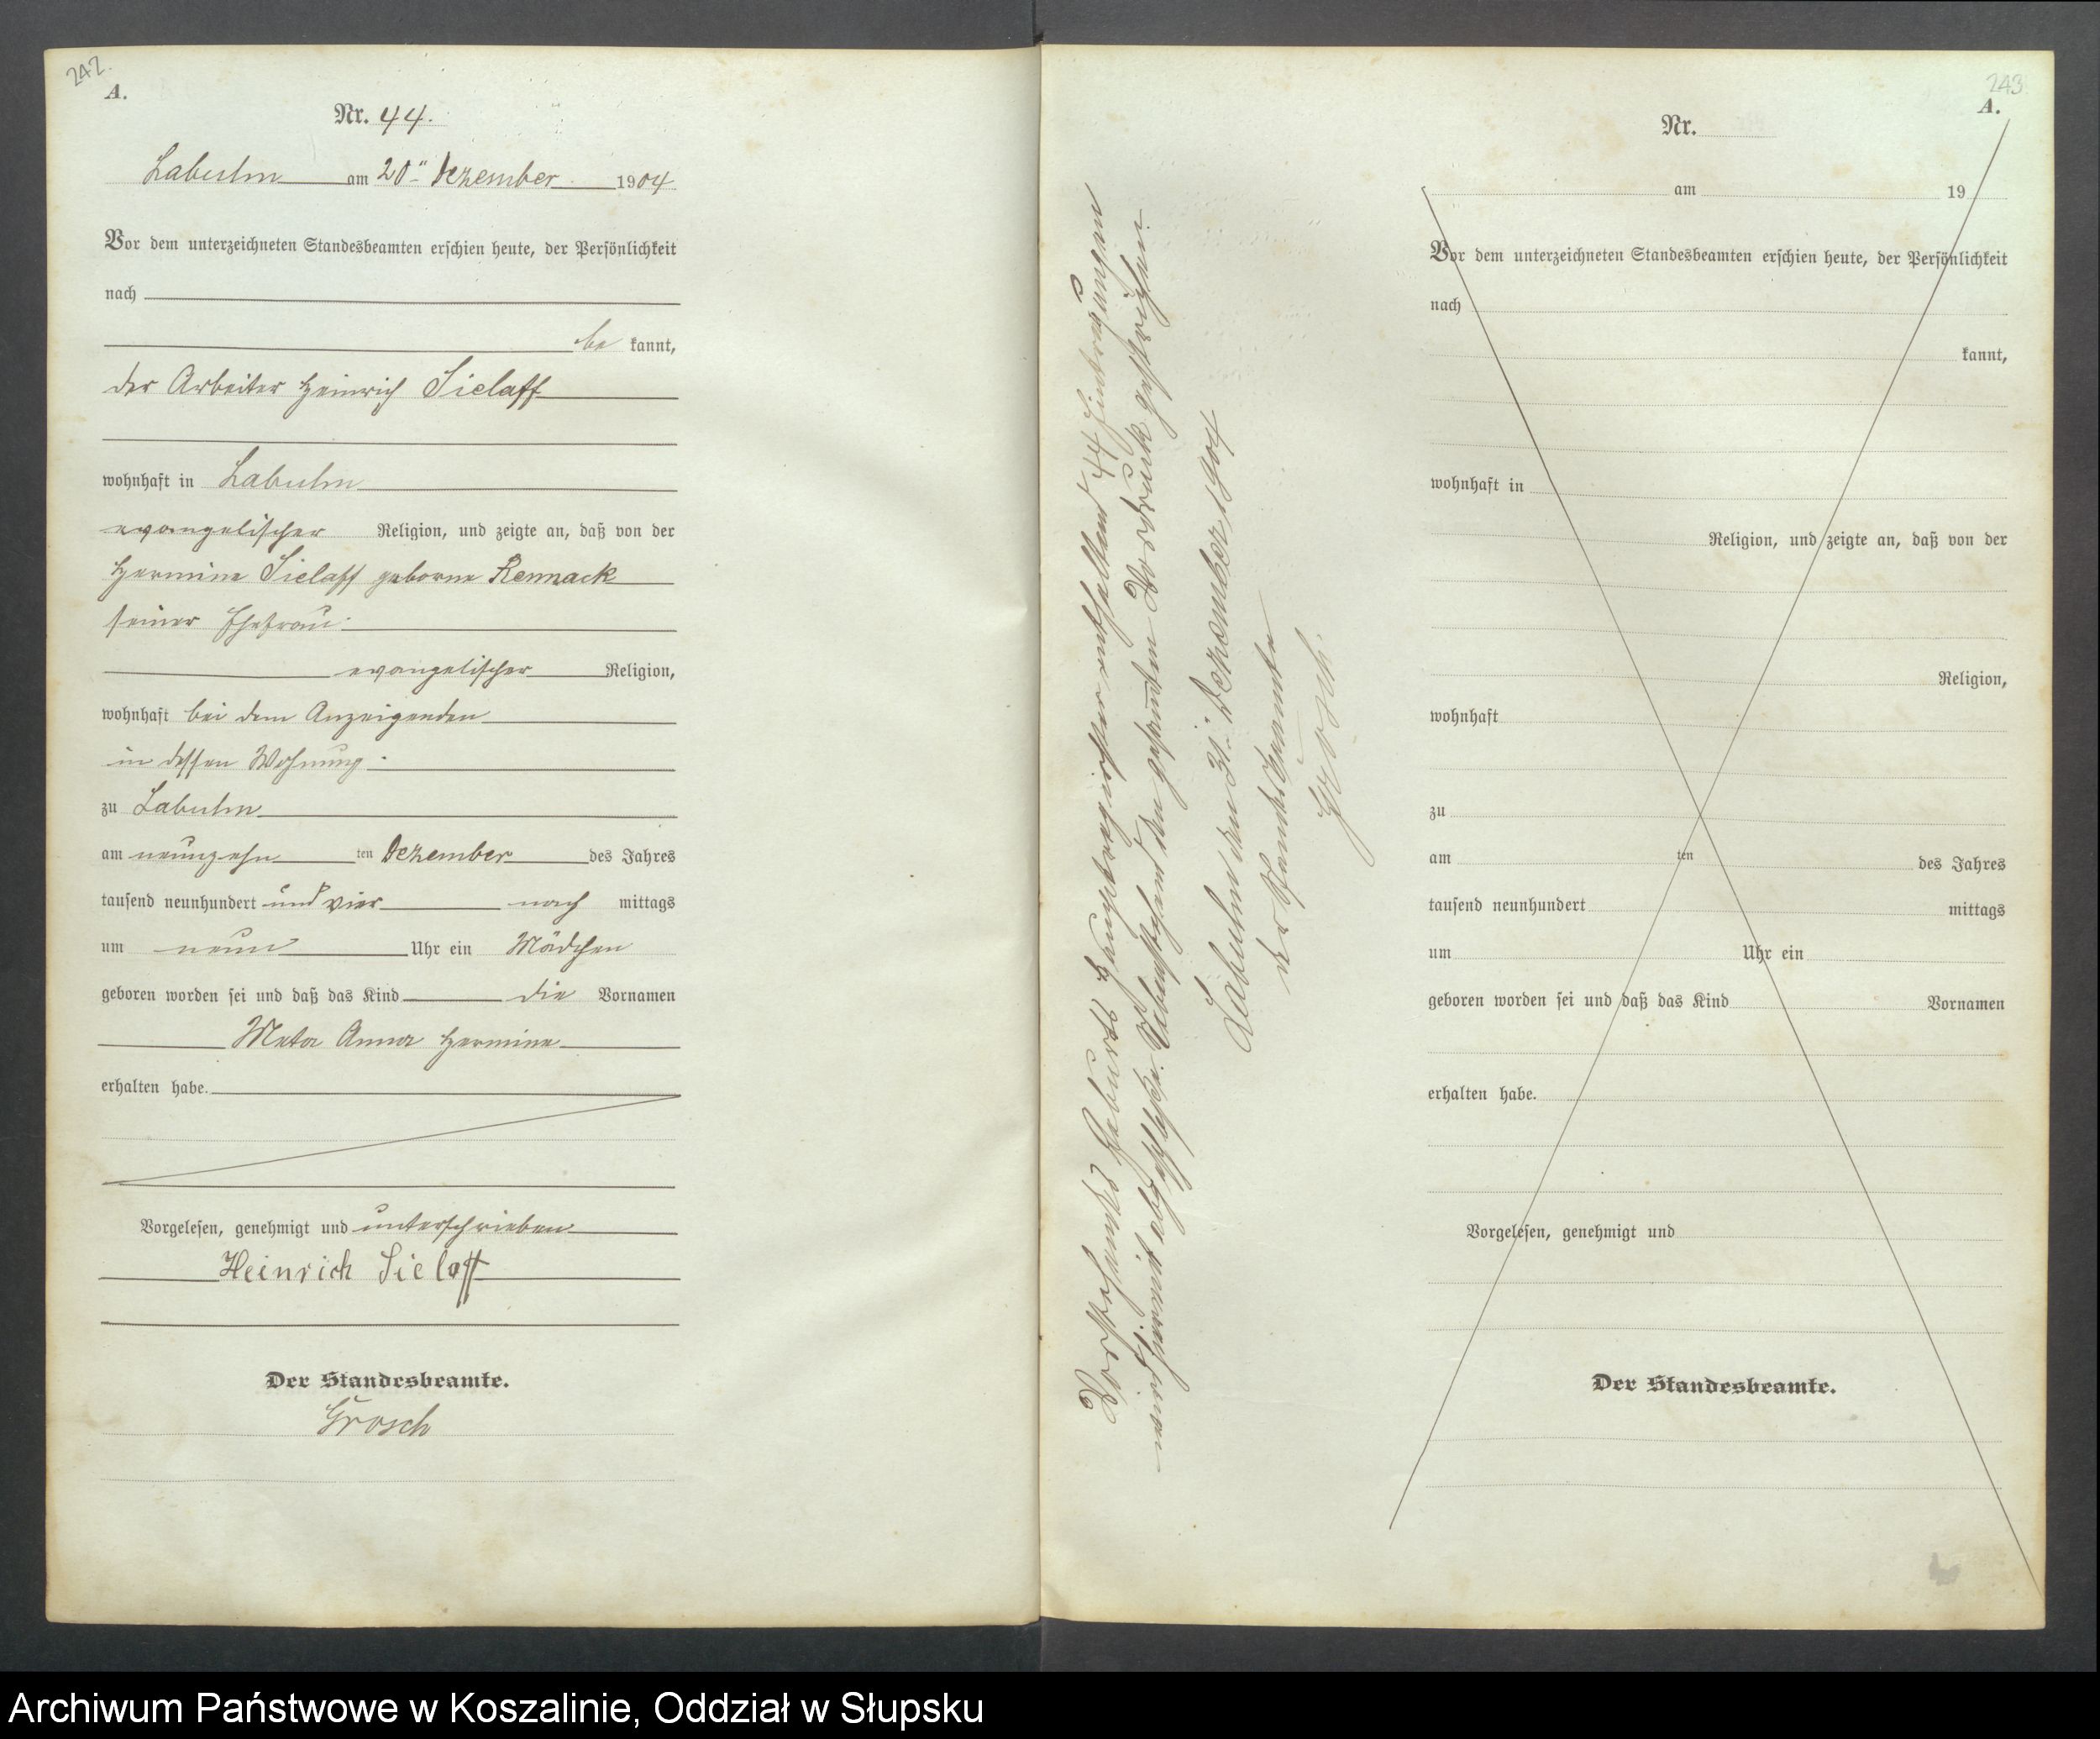 242.
A.
Nr. 44.
Labuhn am 20ten Dezember 1904
Vor dem unterzeichneten Standesbeamten erschien heute, der Persönlichkeit
nach
be kannt,
der Arbeiter Heinrich Sielaff
wohnhaft in Labuhn
evangelischer Religion, und zeigte an, daß von der
Hermine Sielaff geborne Remnack
seiner Ehefrau
evangelischer Religion,
wohnhaft bei dem Anzeigenden
in dessen Wohnung
zu Labuhn
am neunzehn ten Dezember des Jahres
tausend neunhundert und vier nach mittags
um neun Uhr ein Mädchen
geboren worden sei und daß das Kind die Vornamen
Meta Anna Hermine
erhalten habe.
Vorgelesen, genehmigt und unterschrieben
Heinrich Sielaff
Der Standesbeamte.
Grosch
Vorstehendes Geburts Hauptregister enthaltend 44 Eintragungen
wird hiermit abgeschlossen. Vorstehend den gesamten Vordruck gestrichen.
Labuhn den 31. Dezember 1904
der Standesbeamte
Grosch.
243
A.
Nr.
am 19
Vor dem unterzeichneten Standesbeamten erschien heute, der Persönlichkeit
nach
kannt,
wohnhaft in
Religion, und zeigte an, daß von der
Religion,
wohnhaft
zu
am ten des Jahres
tausend neunhundert mittags
um Uhr ein
geboren worden sei und daß das Kind Vornamen
erhalten habe.
Vorgelesen, genehmigt und
Der Standesbeamte.
Archiwum Państwowe w Koszalinie, Oddział w Słupsku